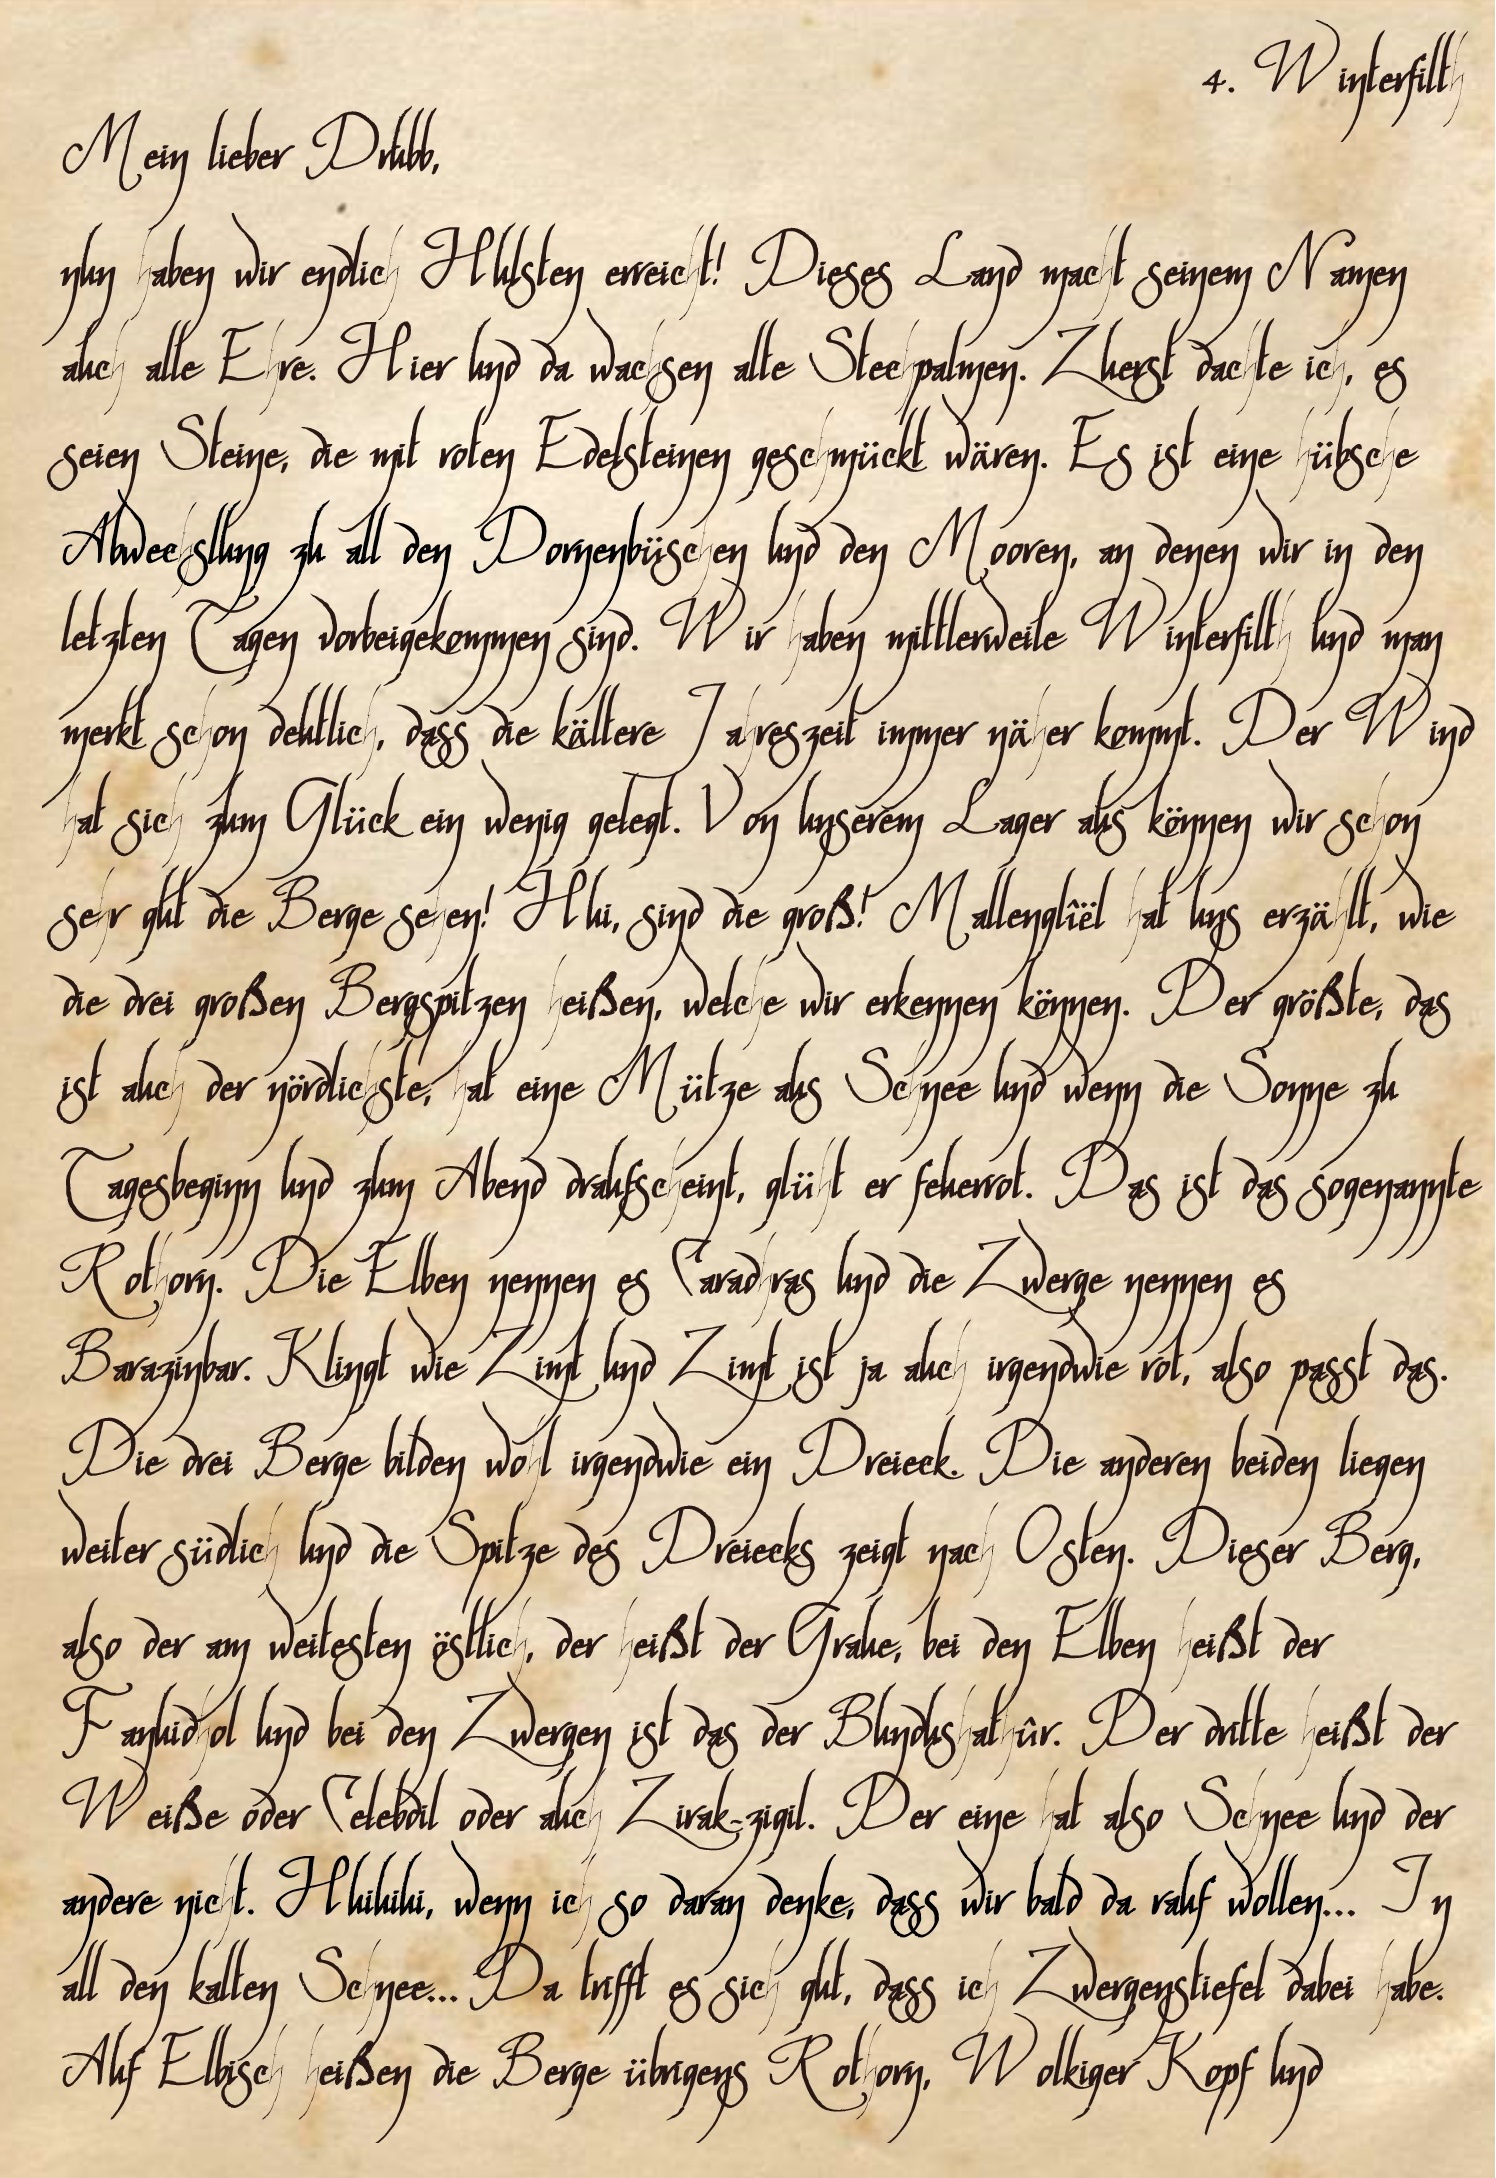 4. Winterfilth
Mein lieber Drubb,
nun haben wir endlich Hulsten erreicht! Dieses Land macht seinem Namen
auch alle Ehre. Hier und da wachsen alte Stechpalmen. Zuerst dachte ich, es
seien Steine, die mit roten Edelsteinen geschmückt wären. Es ist eine hübsche
Abwechslung zu all den Dornenbüschen und den Mooren, an denen wir in den
letzten Tagen vorbeigekommen sind. Wir haben mittlerweile Winterfilth und man
merkt schon deutlich, dass die kältere Jahreszeit immer näher kommt. Der Wind
hat sich zum Glück ein wenig gelegt. Von unserem Lager aus können wir schon
sehr gut die Berge sehen! Hui, sind die groß! Mallenglîël hat uns erzählt, wie
die drei großen Bergspitzen heißen, welche wir erkennen können. Der größte, das
ist auch der nördlichste, hat eine Mütze aus Schnee und wenn die Sonne zu
Tagesbeginn und zum Abend draufscheint, glüht er feuerrot. Das ist das sogenannte
Rothorn. Die Elben nennen es Caradhras und die Zwerge nennen es
Barazinbar. Klingt wie Zimt und Zimt ist ja auch irgendwie rot, also passt das.
Die drei Berge bilden wohl irgendwie ein Dreieck. Die anderen beiden liegen
weiter südlich und die Spitze des Dreiecks zeigt nach Osten. Dieser Berg,
also der am weitesten östlich, der heißt der Graue, bei den Elben heißt der
Fanuidhol und bei den Zwergen ist das der Bundushathûr. Der dritte heißt der
Weiße oder Celebdil oder auch Zirak-zigil. Der eine hat also Schnee und der
andere nicht. Huiuiui, wenn ich so daran denke, dass wir bald da rauf wollen... In
all den kalten Schnee... Da trifft es sich gut, dass ich Zwergenstiefel dabei habe.
Auf Elbisch heißen die Berge übrigens Rothorn, Wolkiger Kopf und